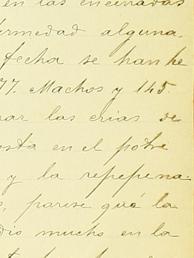 en las encinadas
ermedad alguna.
fecha se han he
77. Machos y 145.
nar las crias de
osta en el potre
y la repepena
s, parese qué la
dio mucho en la